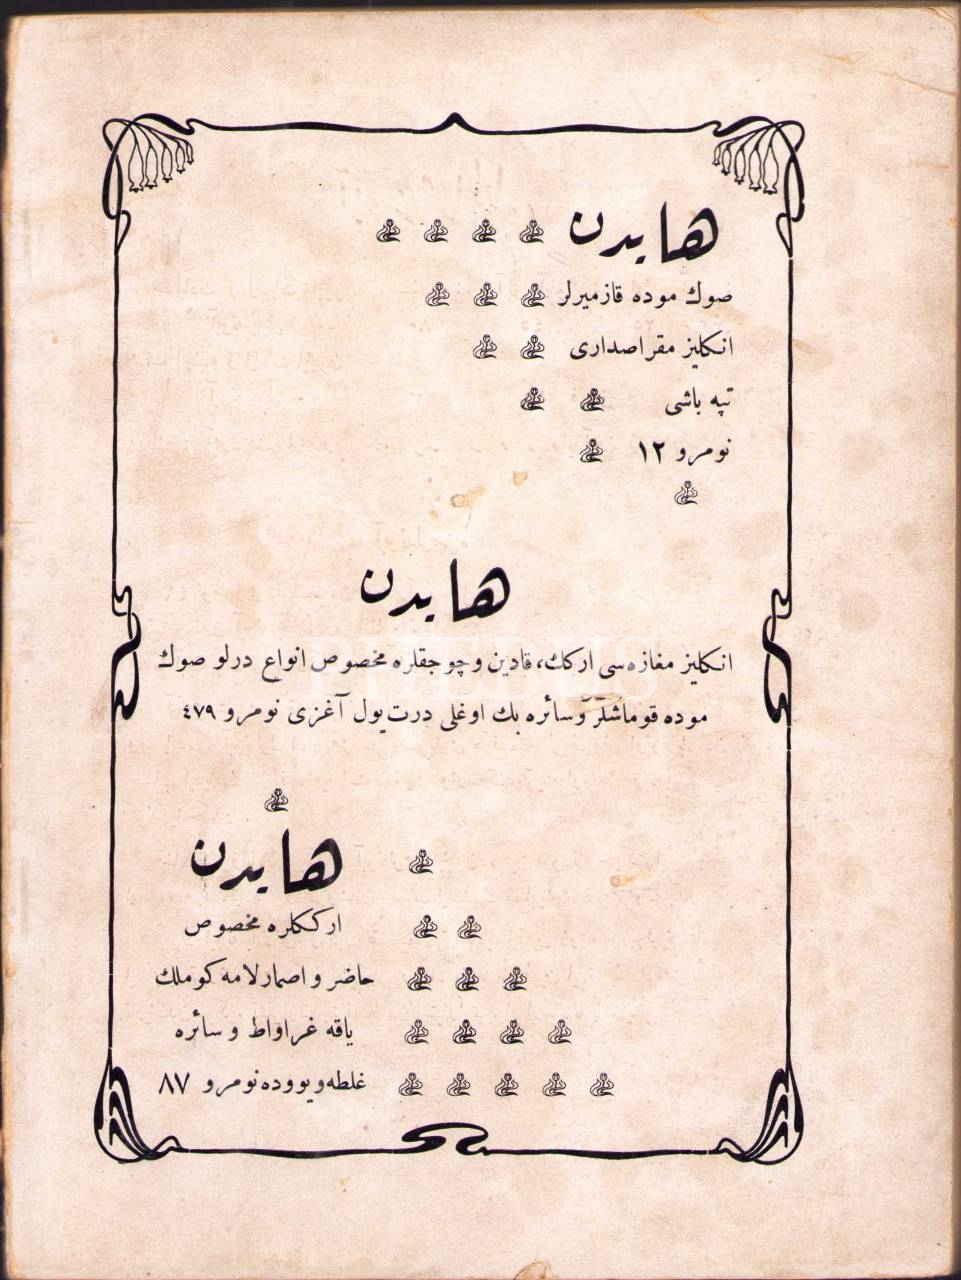 هايدن
صوك موده قازميرلر
انكليز مقراصدارى
تپه باشى
نومرو ١٢
هايدن
انكليز مغازه‌سى اركك، قادين و چوجقلره مخصوص انواع درلو صوك
موده قوماشلر وسائره بك اوغلى درت يول آغزى نومرو ٤٧٩
هايدن
ارككلره مخصوص
حاضر و اصمارلامه كوملك
ياقه غراواط و سائره
غلطه‌ويووده نومرو ٨٧